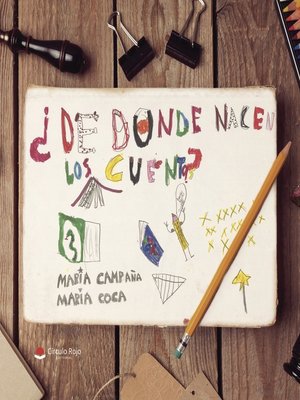 ¿DE DONDE NACEN
LOS CUENTO?
MARIA CAMPAÑA
MARIA COCA
Círculo Rojo
EDITORIAL